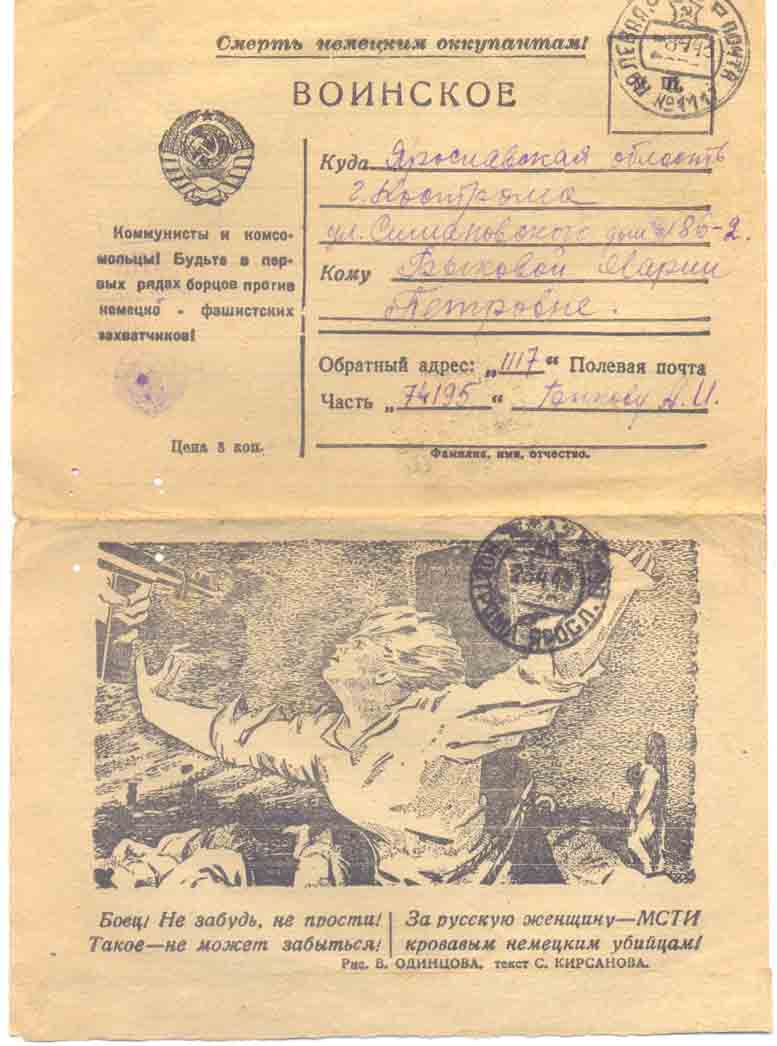 Смерть немецким оккупантам!
ВОИНСКОЕ
ПОЧТА
№ 1117
Куда Ярославская область
г. Кострома
ул. Симановского дом № 186-2.
Коммунисты и комсо-
мольцы! Будьте в пер-
вых рядах борцов против
немецко - фашистских
захватчиков!
Кому Быковой Марии
Петровне.
Обратный адрес: „1117“ Полевая почта
Часть „74195“ А. И.
Цена 8 коп.
Фамилия, имя, отчество.
ЯРОСЛ.
Боец! Не забудь, не прости!
Такое—не может забыться!
За русскую женщину—МСТИ
кровавым немецким убийцам!
Рис. В. ОДИНЦОВА, текст С. КИРСАНОВА.